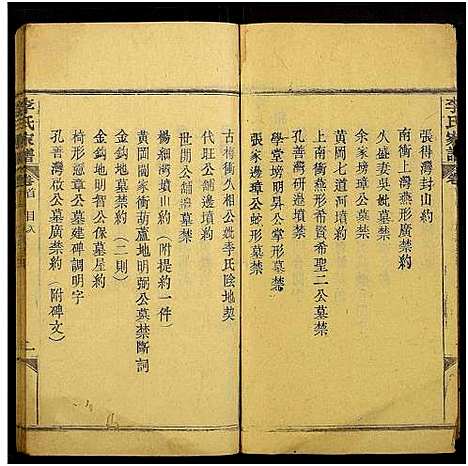 李氏家譜
卷
張得灣封山約
南衝上灣燕形廣禁約
久盛妻吳妣墓禁
余家塝璋公墓禁約
黃岡七道河墳約
燕形地墓禁賢希聖二公墓禁
學堂塝明昇公掌形墓禁
孔善灣研邊墳禁
張家邊璋公蛇形墓禁
古樓衝久相公妣李氏陰地契
代旺公舖邊墳禁
世開公舖墓禁
楊細灣墳山約（附提約一件）
黃岡閻家衝葫蘆地明弼公墓禁斷詞
金鈎地墓禁約（二則）
金鈎地明智公保墓屋約
椅形憲章公墓建碑調明字
孔善灣啟公墓廣禁約（附碑文）
李氏家譜
卷首
目
一